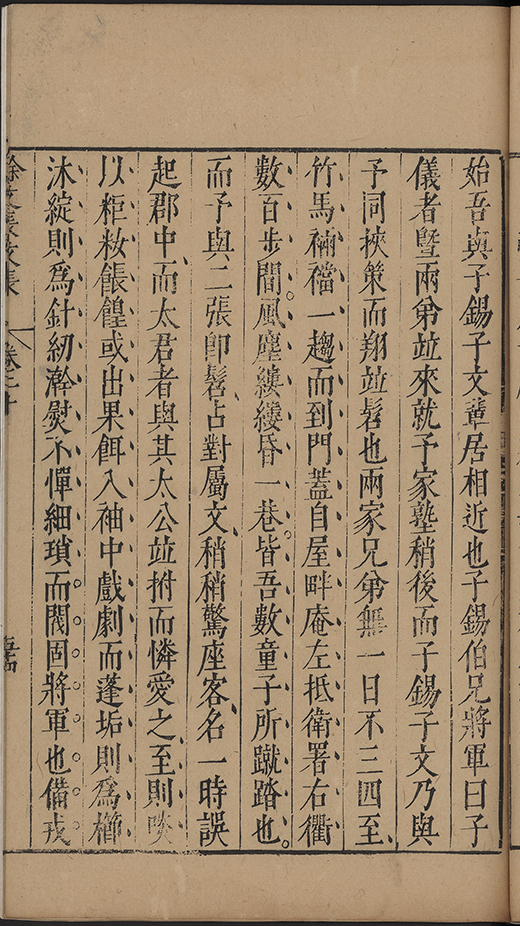 始吾與子錫子文輩居相近也子錫伯兄將軍曰子
儀者暨兩弟竝來就予家塾稍後而子錫子文乃與
予同挾策而翔竝髫也兩家兄弟無一日不三四至
竹馬裲襠一趨而到門蓋自屋畔庵左抵衛署右衢
數百步間風塵縷縷昏一巷皆吾數童子所蹴踏也
而予與二張即髫占對屬文稍稍驚座客名一時誤
起郡中而太君者與其太公竝拊而憐愛之至則啖
以粔籹餦餭或出果餌入袖中戲劇而蓬垢則爲櫛
沐綻則爲針紉澣熨不憚細瑣而閥固將軍也備戎
徐文長文集
卷之二十